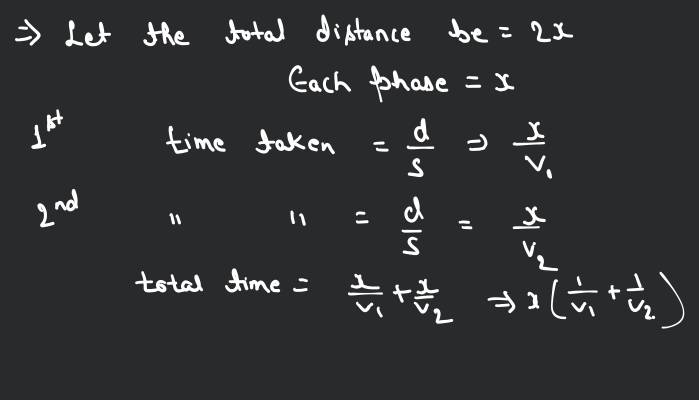 ⇒ Let the total distance be = 2x
Each phase = x
1st time taken = d/s ⇒ x/v₁
2nd " " = d/s = x/v₂
total time = x/v₁ + x/v₂ ⇒ x(1/v₁ + 1/v₂)